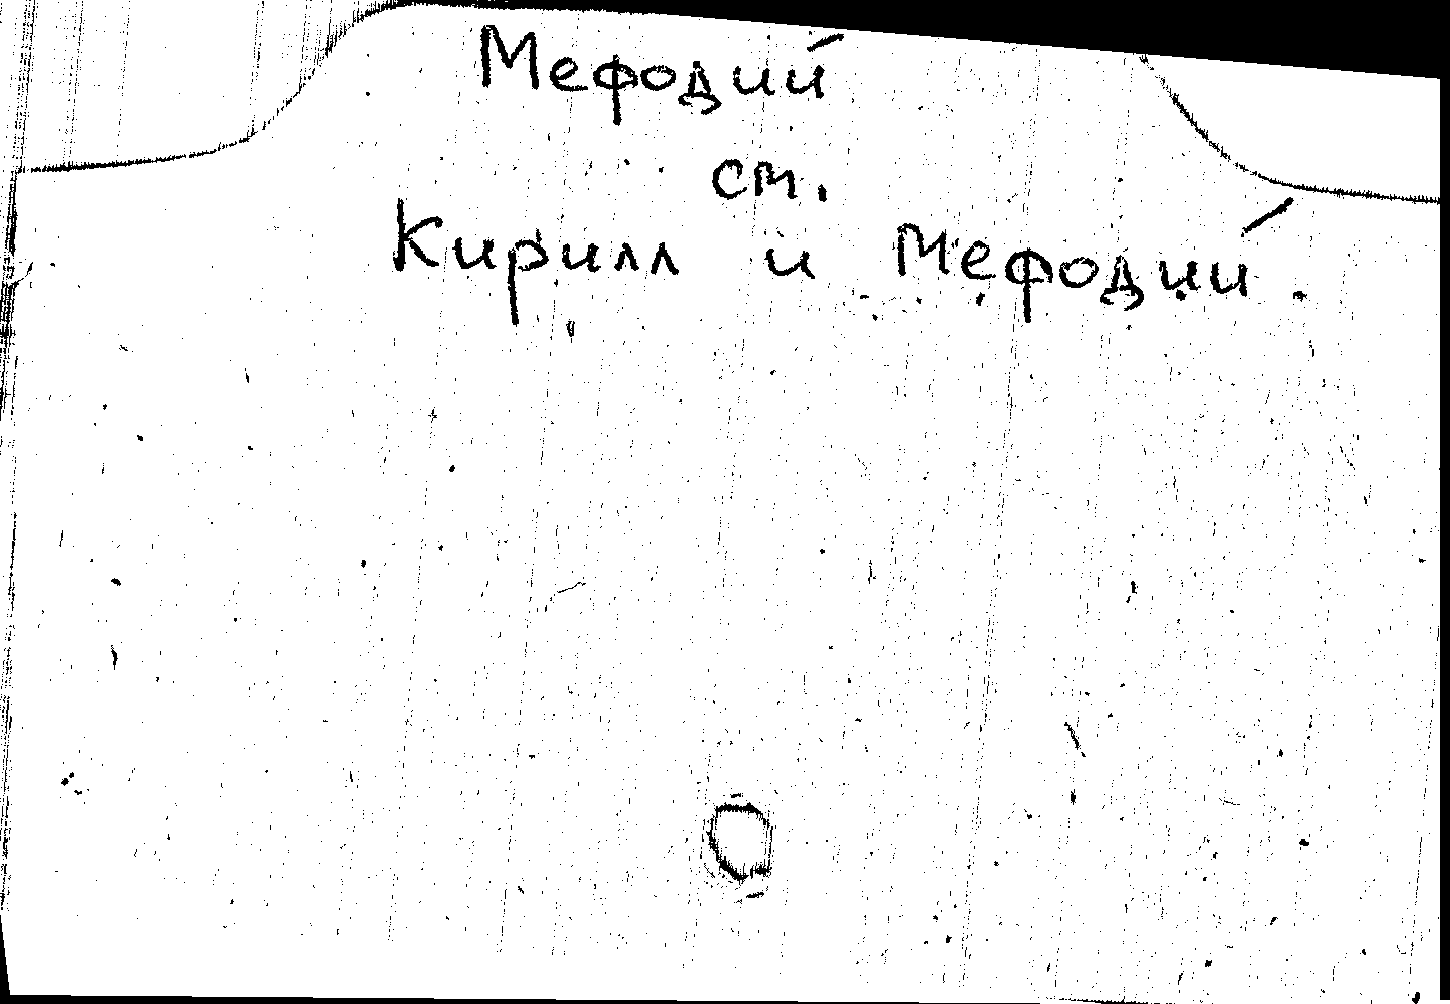 Мефодий
ст.
Кирилл и Мефодий.